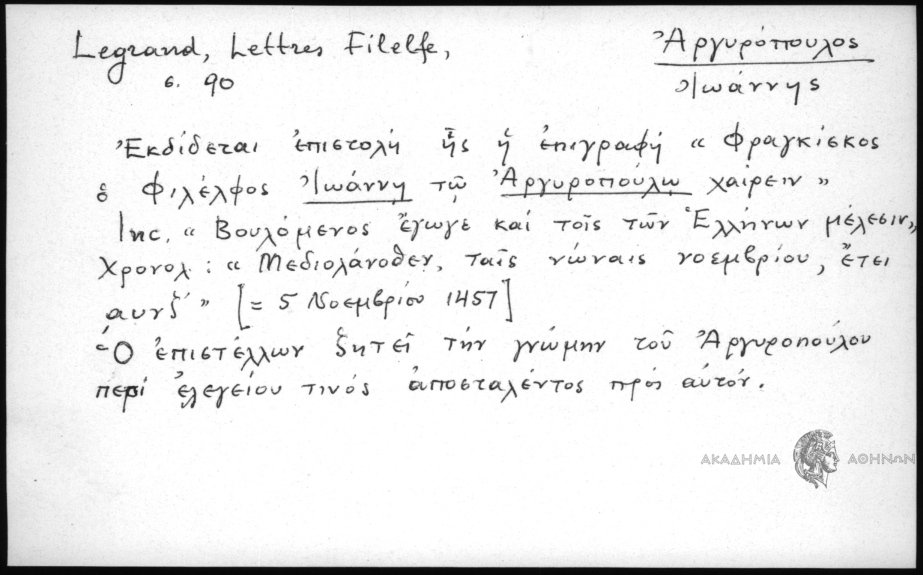 Legrand, Lettres Filelfe,
σ. 90
Ἀργυρόπουλος
Ἰωάννης
Ἐκδίδεται ἐπιστολή ἧς ἡ ἐπιγραφή « Φραγκίσκος
ὁ Φιλέλφος Ἰωάννῃ τῷ Ἀργυροπούλῳ χαίρειν »
Inc. « Βουλόμενος ἔγωγε καί τοῖς τῶν Ἑλλήνων μέλεσιν »,
Χρονολ : « Μεδιολάνοθεν, ταῖς νώναις νοεμβρίου, ἔτει
αυνζ´ » [= 5 Νοεμβρίου 1457]
Ὁ ἐπιστέλλων ζητεῖ τήν γνώμην τοῦ Ἀργυροπούλου
περί ἐλεγείου τινός ἀποσταλέντος πρός αὐτόν.
ΑΚΑΔΗΜΙΑ ΑΘΗΝΩΝ